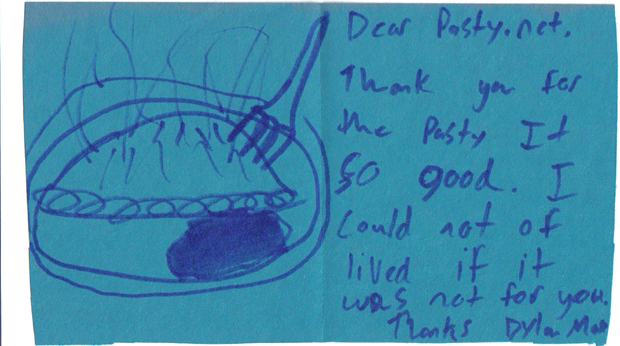 Dear Pasty.net.
Thank you for
the Pasty It
so good. I
could not of
lived if it
was not for you.
Thanks Dylan